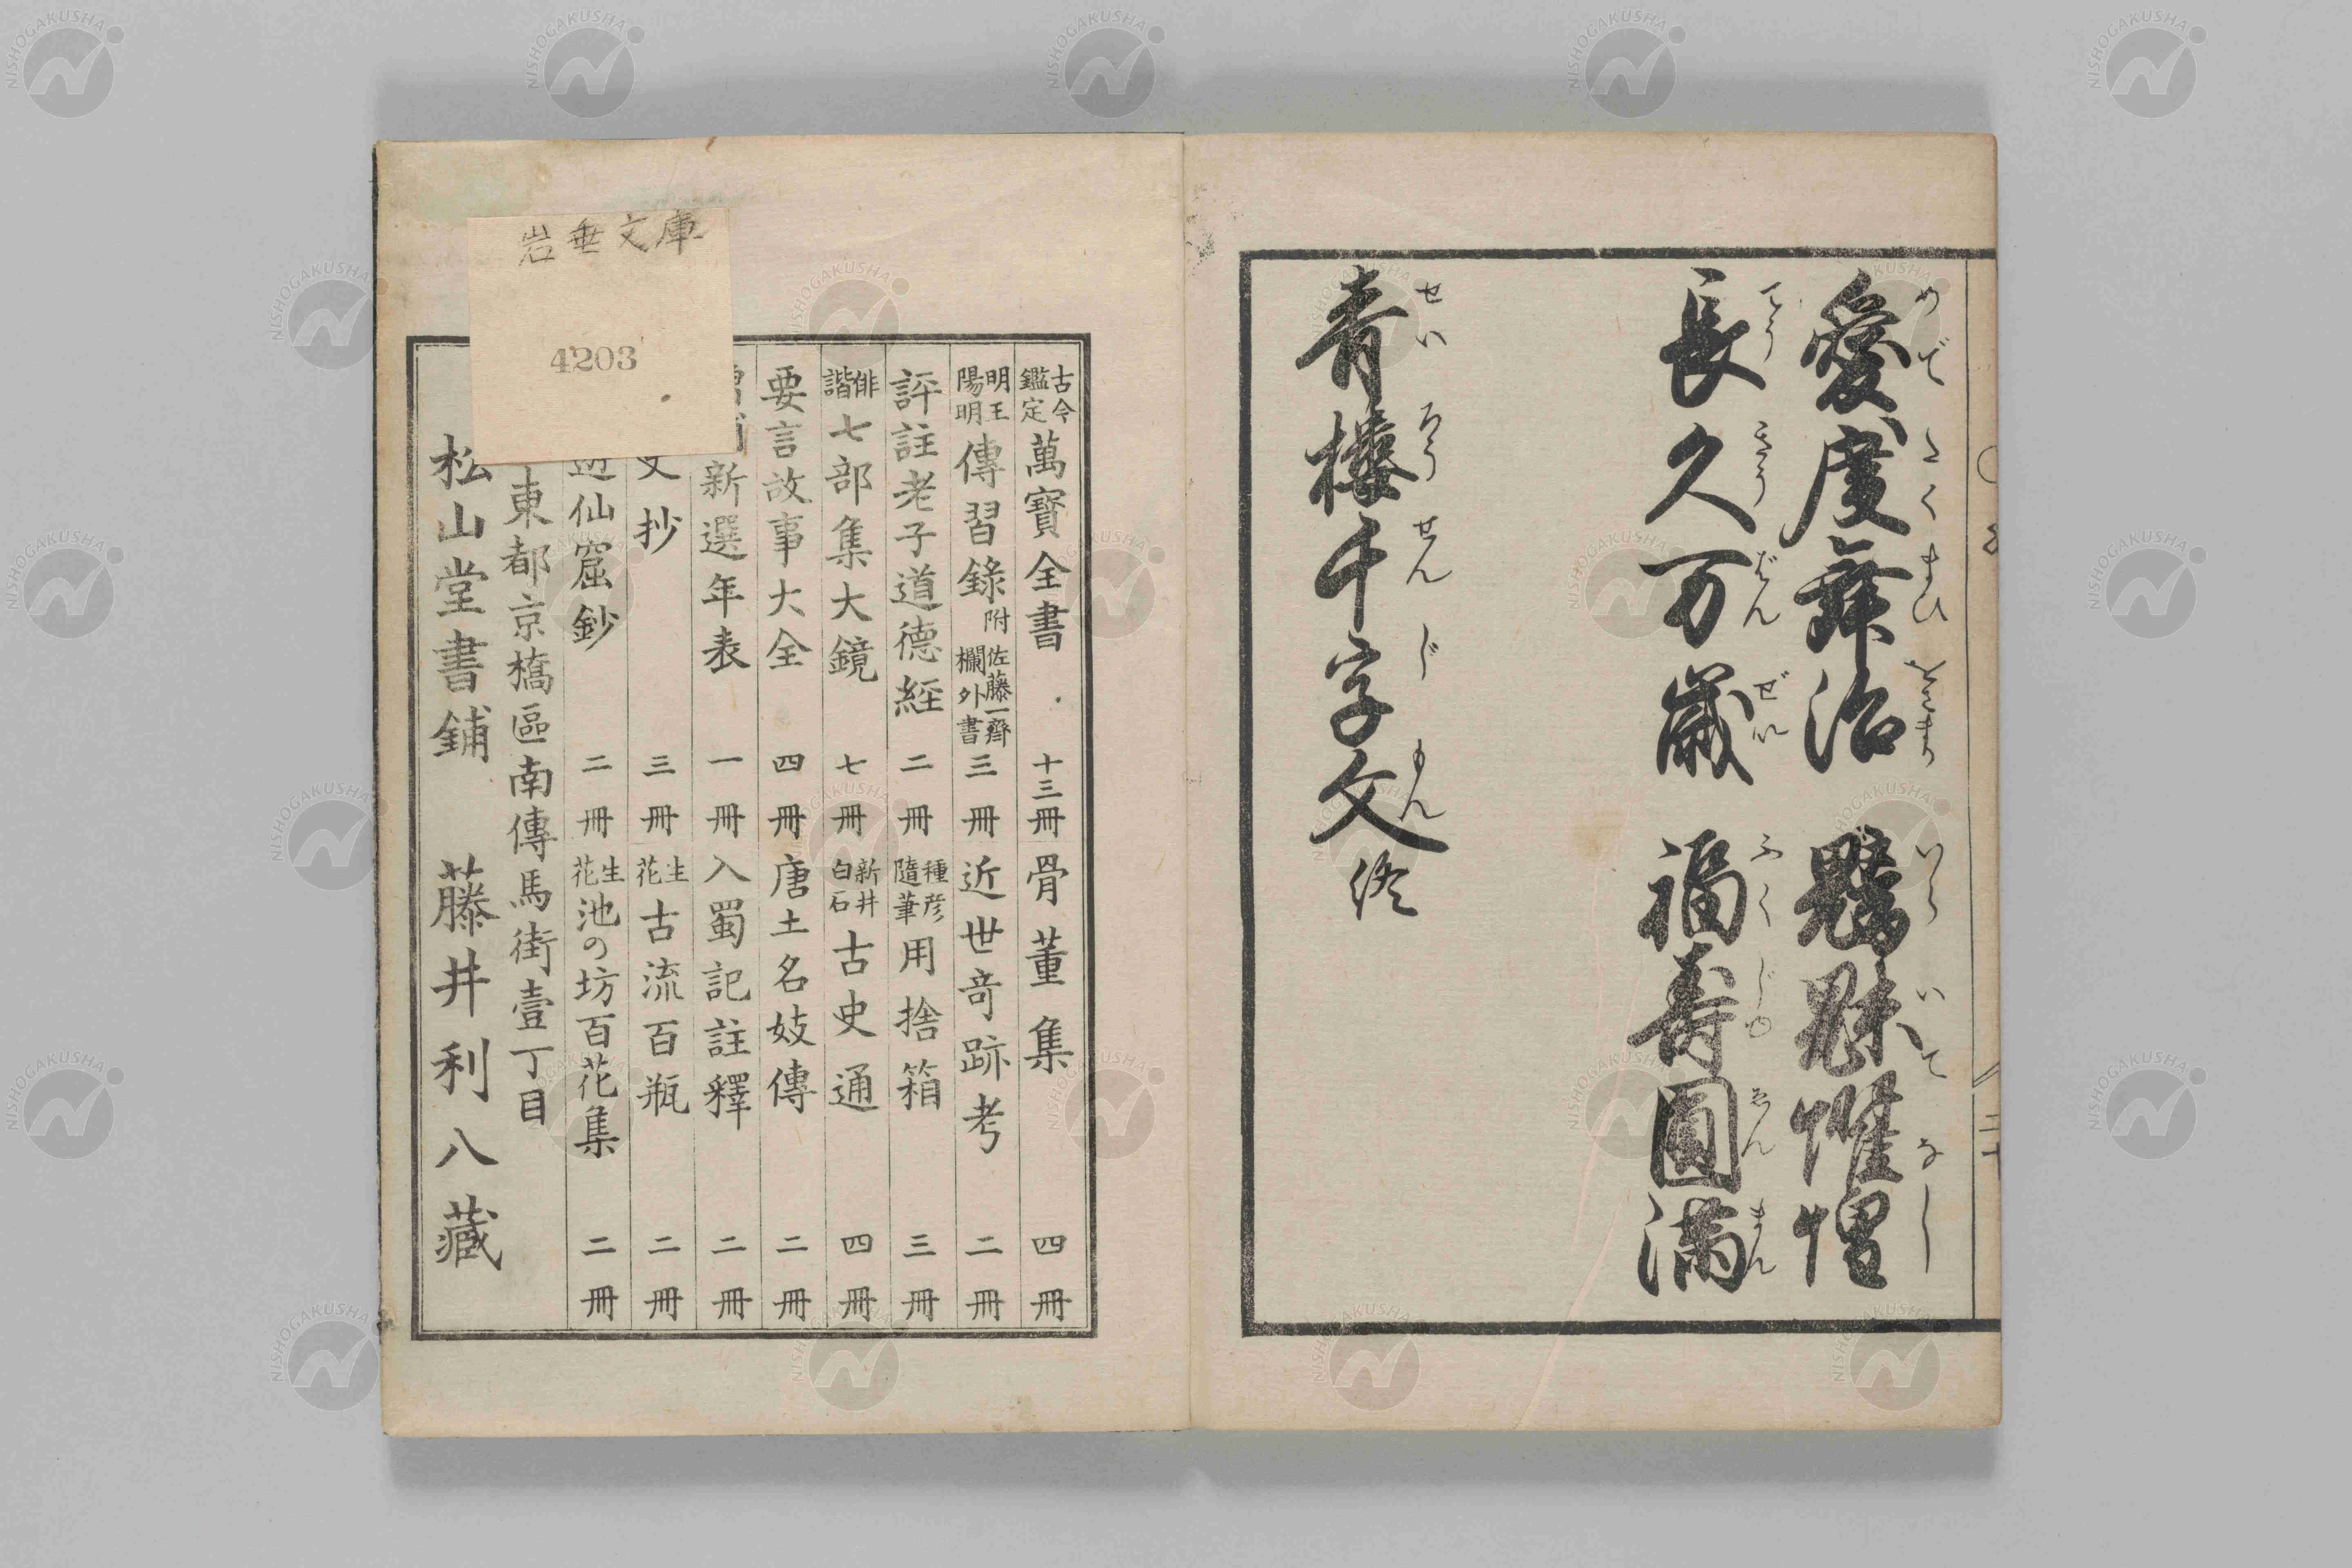 愛度舞治 魑魅憚惶
めでたくまひをさまり いらいてなし
長久万歳 福寿圓満
てうきうばんぜい ふくじゆゑんまん
青楼千字文終
せいろうせんじもん
二十
古今鑑定 萬寶全書 十三冊 骨董集 四冊
明王陽明 傳習錄 附佐藤一齋欄外書 三冊 近世奇跡考 二冊
評註老子道德経 二冊 種彦隨筆 用捨箱 三冊
俳諧 七部集大鏡 七冊 新井白石 古史通 四冊
要言故事大全 四冊 唐土名妓傳 二冊
新選年表 一冊 入蜀記註釋 二冊
抄 三冊 生花 古流百瓶 二冊
仙窟鈔 二冊 生花 池の坊百花集 二冊
東都京橋區南傳馬街壹丁目
松山堂書鋪 藤井利八藏
岩垂文庫
4203
NISHOGAKUSHA